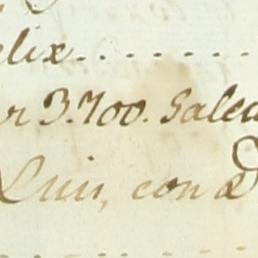 elix.........
r 3.700. Saled
Luis, con d